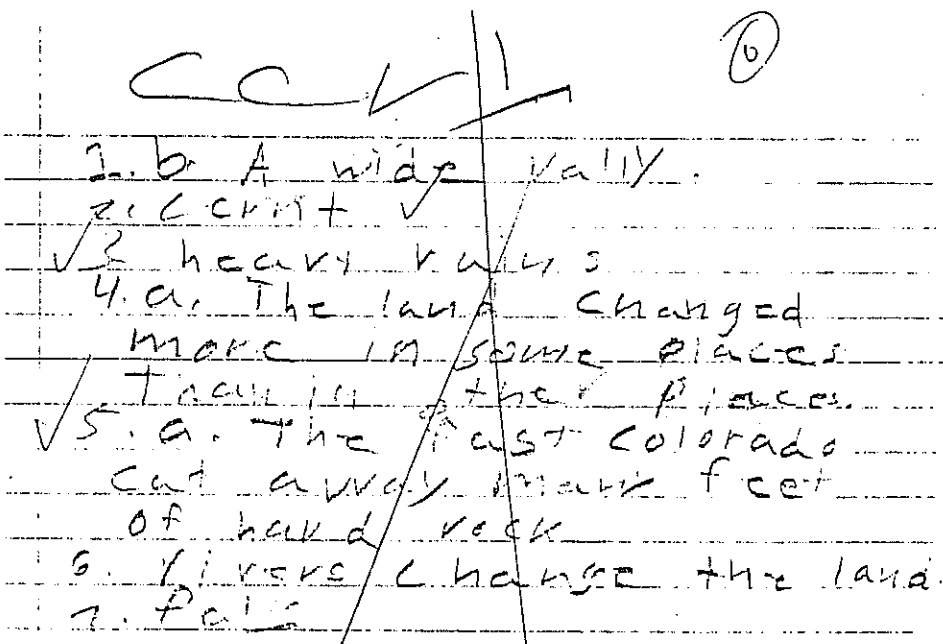 1. b A wide vally.
2. c
3 heavy rains
4. a. The land changed
more in some places
Than in other places.
5. a. The fast colorado
cut away many feet
of hard rock
6. rivers change the land.
7.